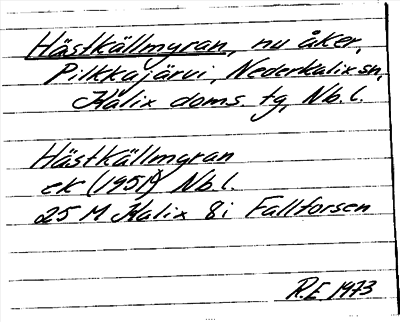 Hästkällmyran, nu åker,
Pilkkajärvi, Nederkalix sn,
Kalix doms. tg, Nb. l.
Hästkällmyran
ek (1951) Nb. l.
25 M Kalix 8i Fallforsen
R.E 1973